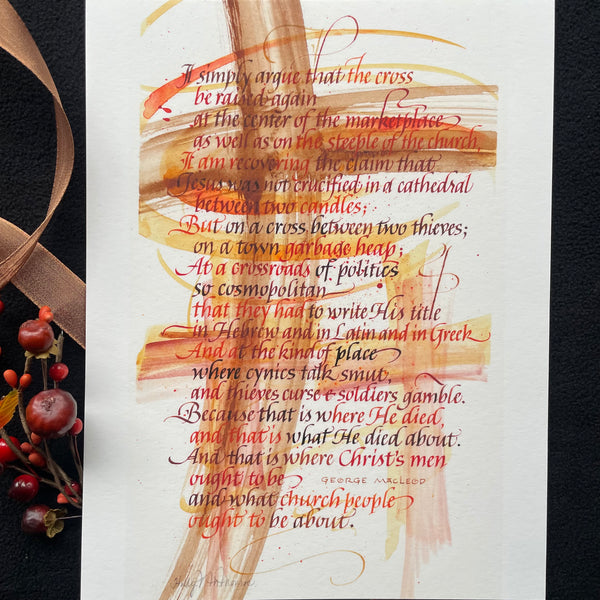 I simply argue that the cross
be raised again
at the center of the marketplace
as well as on the steeple of the church,
I am recovering the claim that
Jesus was not crucified in a cathedral
between two candles;
But on a cross between two thieves;
on a town garbage heap;
At a crossroads of politics
so cosmopolitan
that they had to write His title
in Hebrew and in Latin and in Greek
And at the kind of place
where cynics talk smut,
and thieves curse & soldiers gamble.
Because that is where He died,
and that is what He died about.
And that is where Christ's men
ought to be
GEORGE MACLEOD
and what church people
ought to be about.